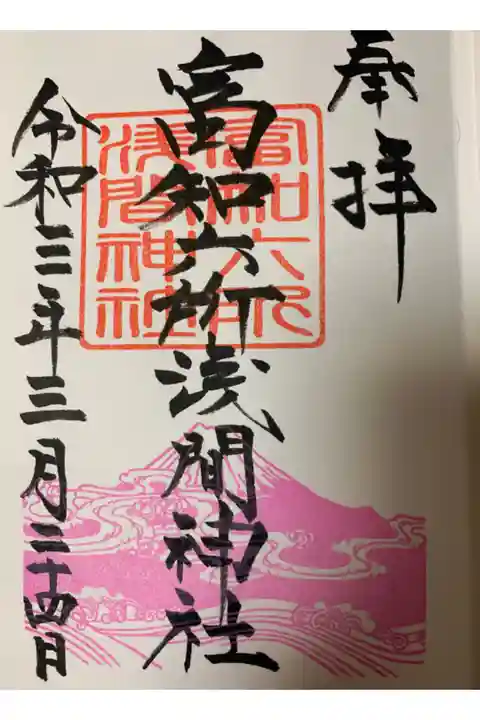 奉拝
富知六所浅間神社
富知六所
浅間神社
令和三年三月二十四日